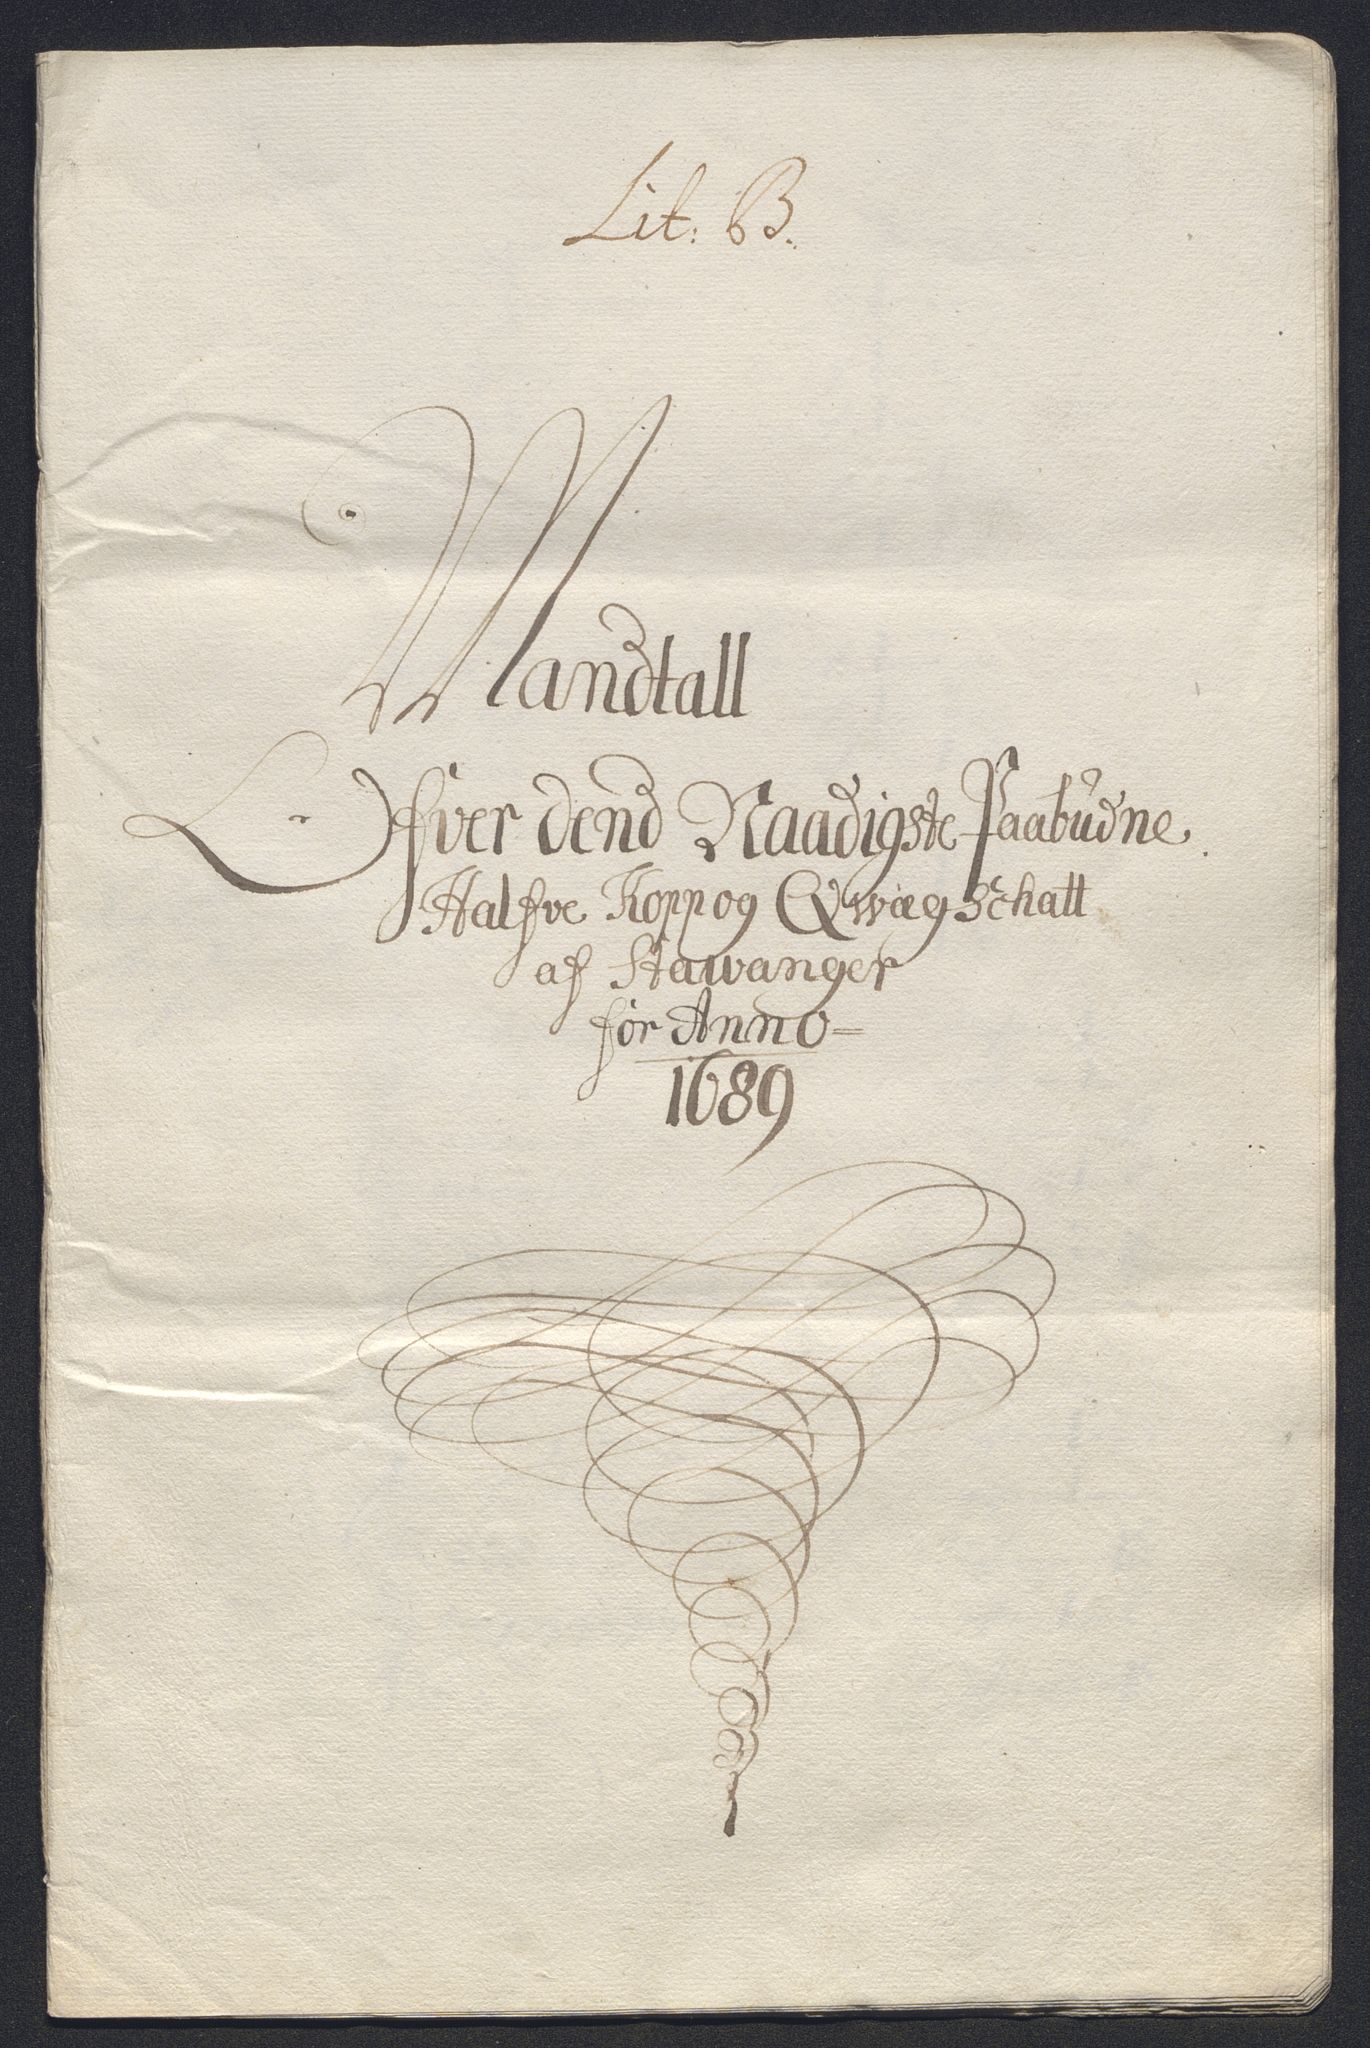 Lit: B.
Mandtall
Ofver dend Naadigste Paabudne
Halfve Kopp og Qwæg Schatt
af Stawanger
for Anno=
1689